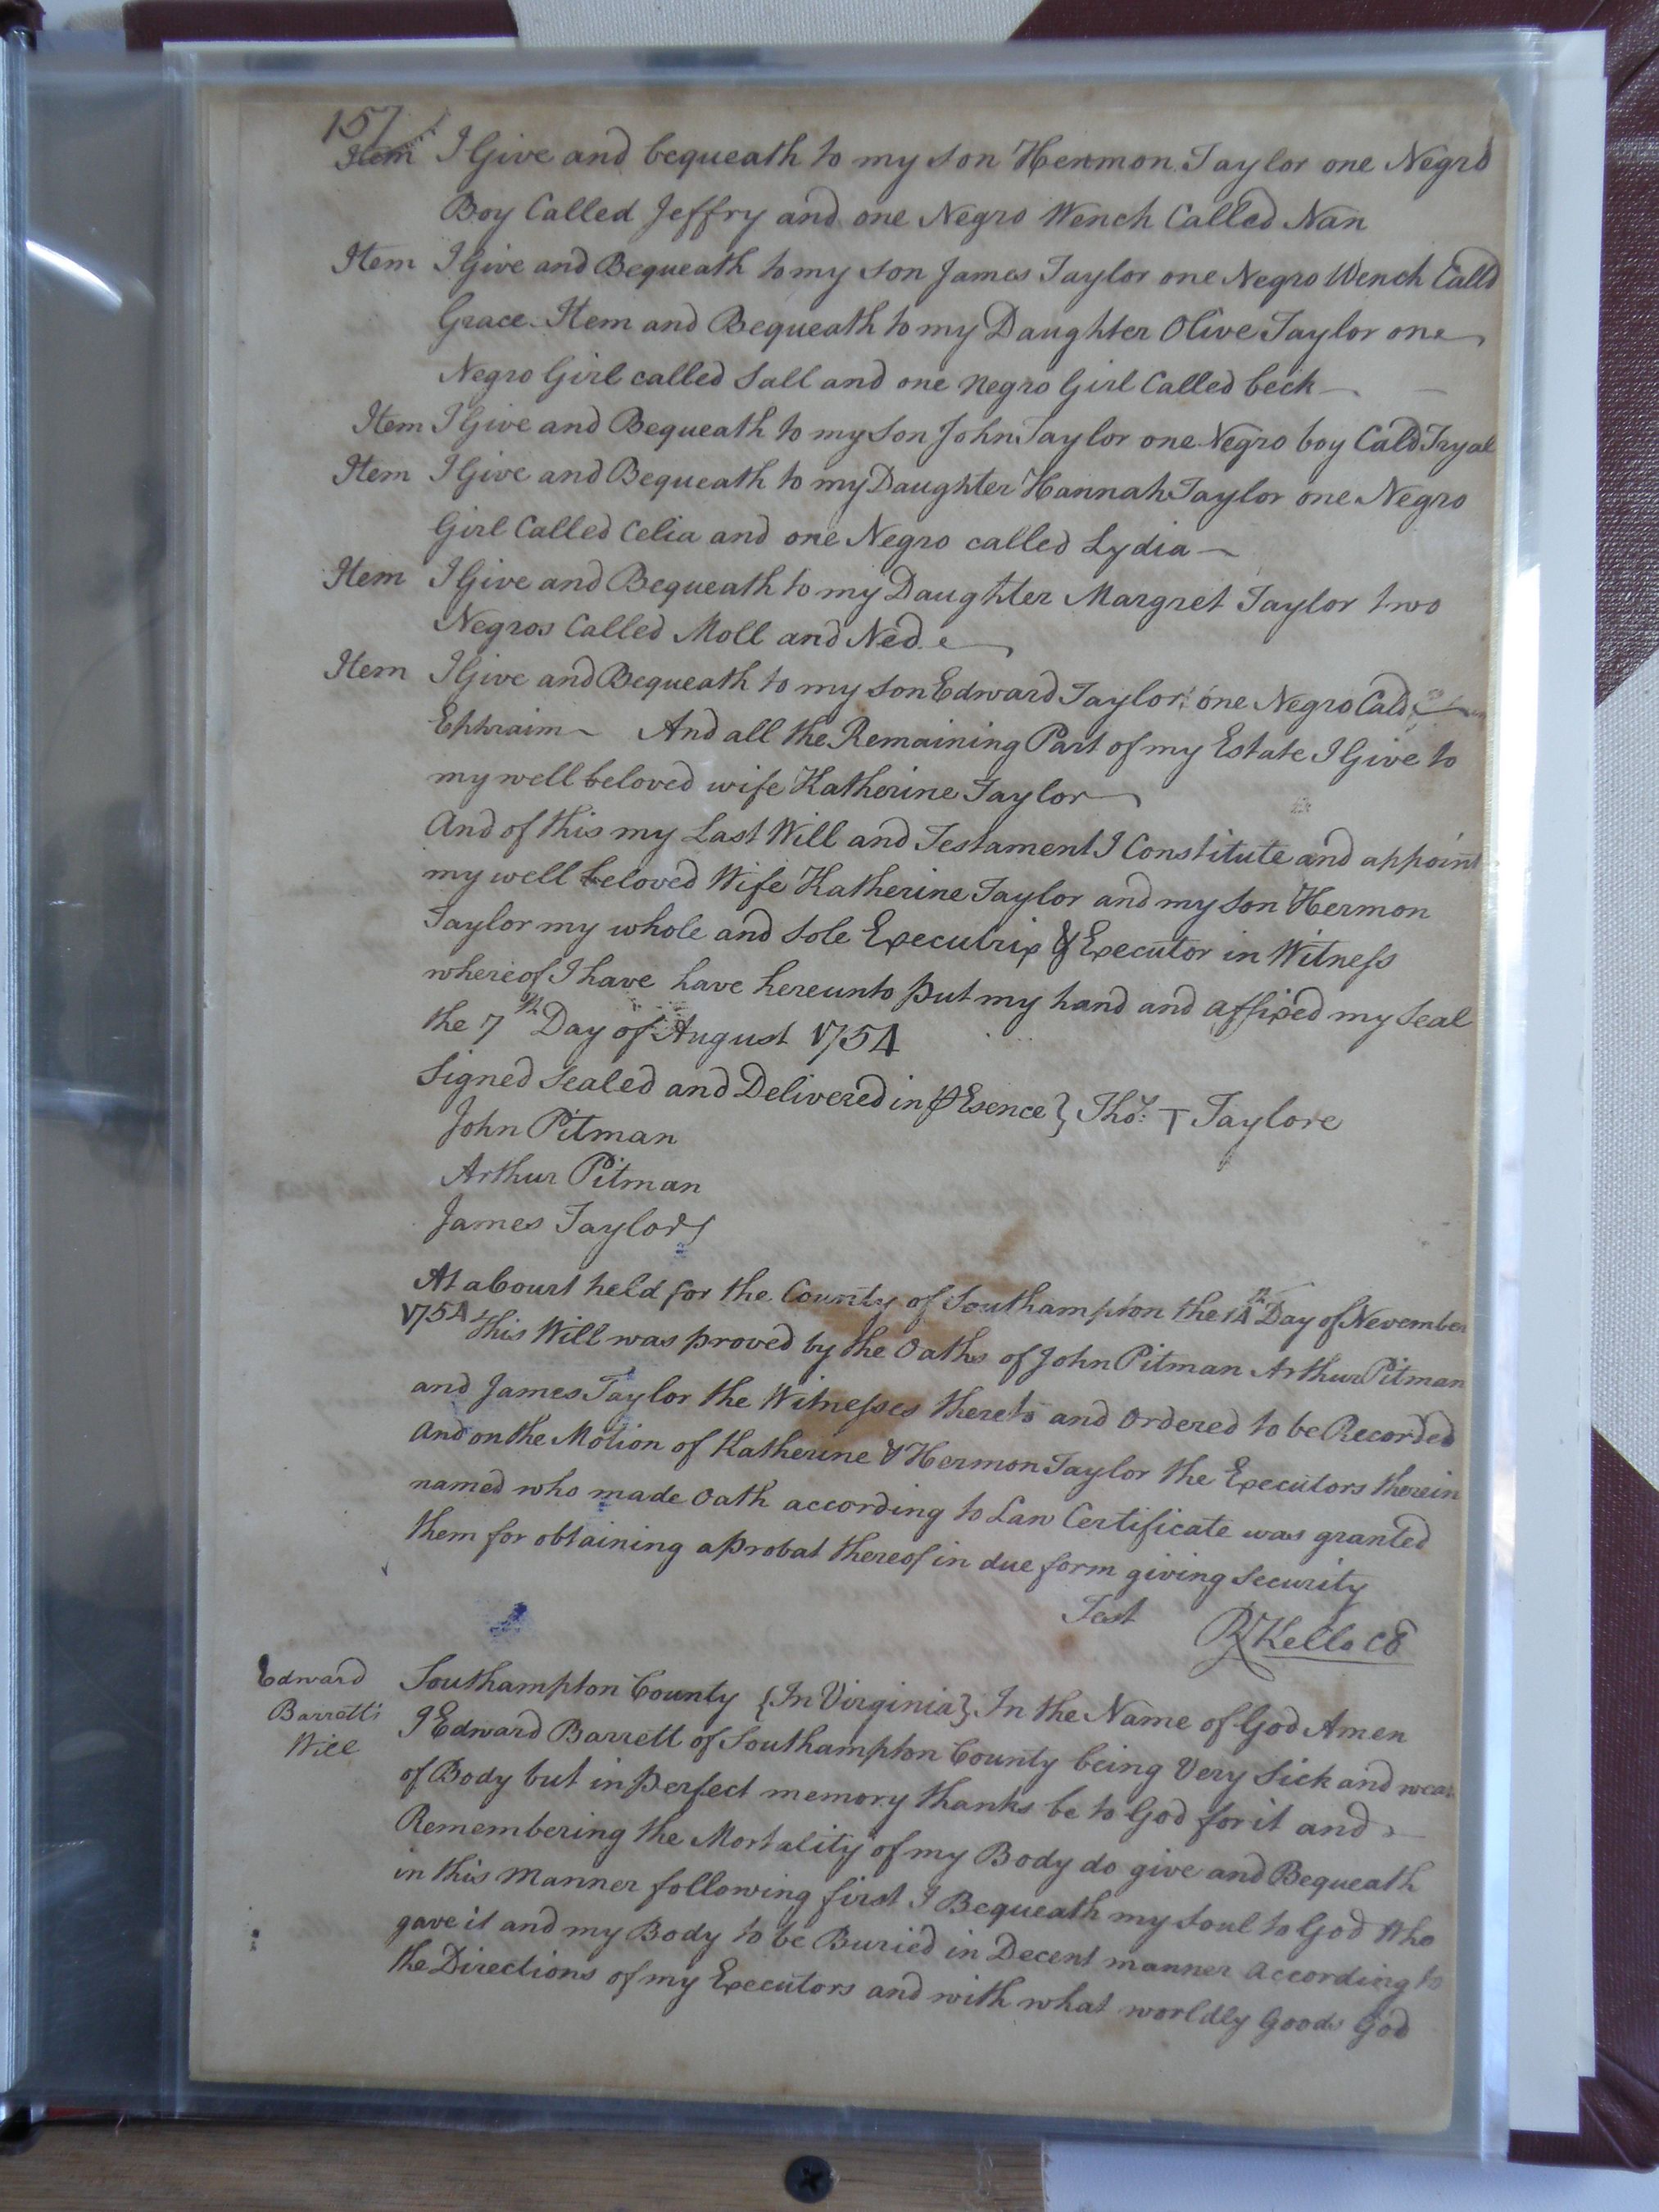 157
Item I Give and bequeath to my son Hermon Taylor one Negro
Boy Called Jeffry and one Negro Wench Called Nan
Item I Give and Bequeath to my son James Taylor one Negro Wench Calld
Grace Item and Bequeath to my Daughter Olive Taylor one
Negro Girl called Sall and one negro Girl Called beck
Item I Give and Bequeath to my Son John Taylor one Negro boy Cald Tryal
Item I Give and Bequeath to my Daughter Hannah Taylor one Negro
Girl Called Celia and one Negro called Lydia
Item I Give and Bequeath to my Daughter Margret Taylor two
Negros Called Moll and Ned
Item I Give and Bequeath to my son Edward Taylor one Negro Cald
Ephraim And all the Remaining Part of my Estate I Give to
my well beloved wife Katherine Taylor
And of this my Last Will and Testament I Constitute and appoint
my well beloved Wife Katherine Taylor and my Son Hermon
Taylor my whole and Sole Executrix & Executor in Witness
whereof I have have hereunto put my hand and affixed my Seal
the 7th Day of August 1754
Signed Sealed and Delivered in pEsence } Thos. T Taylore
John Pitman
Arthur Pitman
James Taylor
At a Court held for the County of Southampton the 14th Day of November
1754 this Will was proved by the Oaths of John Pitman Arthur Pitman
and James Taylor the Witnesses thereto and Ordered to be Recorded
And on the Motion of Katherine & Hermon Taylor the Executors therein
named who made Oath according to Law Certificate was granted
them for obtaining a probat thereof in due form giving Security
Test R Kello CC
Edward
Barrett's
Will
Southampton County {In Virginia} In the Name of God Amen
I Edward Barrett of Southampton County being Very Sick and weak
of Body but in perfect memory thanks be to God for it and
Remembering the Mortality of my Body do give and Bequeath
in this Manner following first I Bequeath my Soul to God who
gave it and my Body to be Buried in Decent manner according to
the Directions of my Executors and with what worldly Goods God